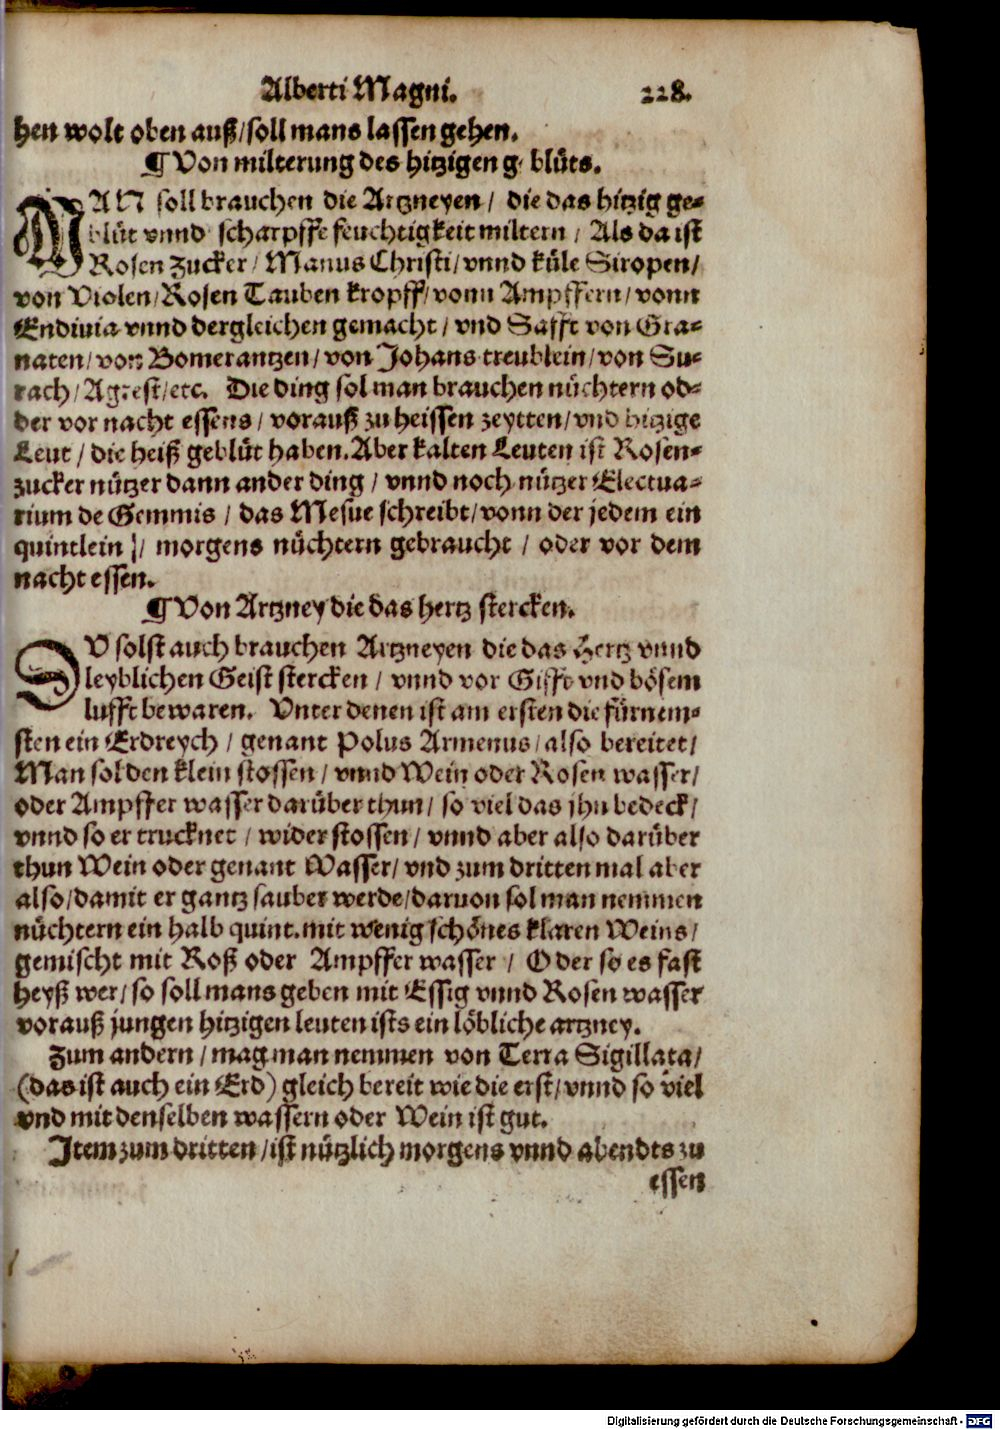 Alberti Magni. 228.
hen wolt oben auß/soll mans lassen gehen.
¶ Von milterung des hitzigen g blüts.
MAN soll brauchen die Artzneyen / die das hitzig ge-
blüt vnnd scharpffe feuchtigkeit miltern / Als da ist
Rosen Zucker / Manus Christi/vnnd küle Siropen/
von Violen/Rosen Tauben kropff/vonn Ampffern/vonn
Endiuia vnnd dergleichen gemacht / vnd Safft von Gra-
naten/von Bomerantzen/von Johans treublein/von Su-
rach/Agrest/etc. Die ding sol man brauchen nüchtern od-
der vor nacht essens / vorauß zu heissen zeytten/vnd hitzige
Leut / die heiß geblüt haben. Aber kalten Leuten ist Rosen-
zucker nützer dann ander ding / vnnd noch nützer Electua-
rium de Gemmis / das Mesue schreibt/vonn der jedem ein
quintlein / morgens nüchtern gebraucht / oder vor dem
nacht essen.
¶ Von Artzney die das hertz stercken.
DV solst auch brauchen Artzneyen die das Hertz vnnd
leyblichen Geist stercken / vnnd vor Gifft vnd bösem
lufft bewaren. Vnter denen ist am ersten die fürnem-
sten ein Erdreych / genant Polus Armenus/also bereitet/
Man sol den klein stossen / vnnd Wein oder Rosen wasser/
oder Ampffer wasser darüber thun/ so viel das jhn bedeck/
vnnd so er trucknet / wider stossen / vnnd aber also darüber
thun Wein oder genant Wasser/vnd zum dritten mal aber
also/damit er gantz sauber werde/daruon sol man nemmen
nüchtern ein halb quint. mit wenig schönes klaren Weins/
gemischt mit Roß oder Ampffer wasser / Oder so es fast
heyß wer/so soll mans geben mit Essig vnnd Rosen wasser
vorauß jungen hitzigen leuten ists ein löbliche artzney.
Zum andern / mag man nemmen von Terra Sigillata/
(das ist auch ein Erd) gleich bereit wie die erst/vnnd so viel
vnd mit denselben wassern oder Wein ist gut.
Item zum dritten/ist nützlich morgens vnnd abendts zu
essen
Digitalisierung gefördert durch die Deutsche Forschungsgemeinschaft - DFG